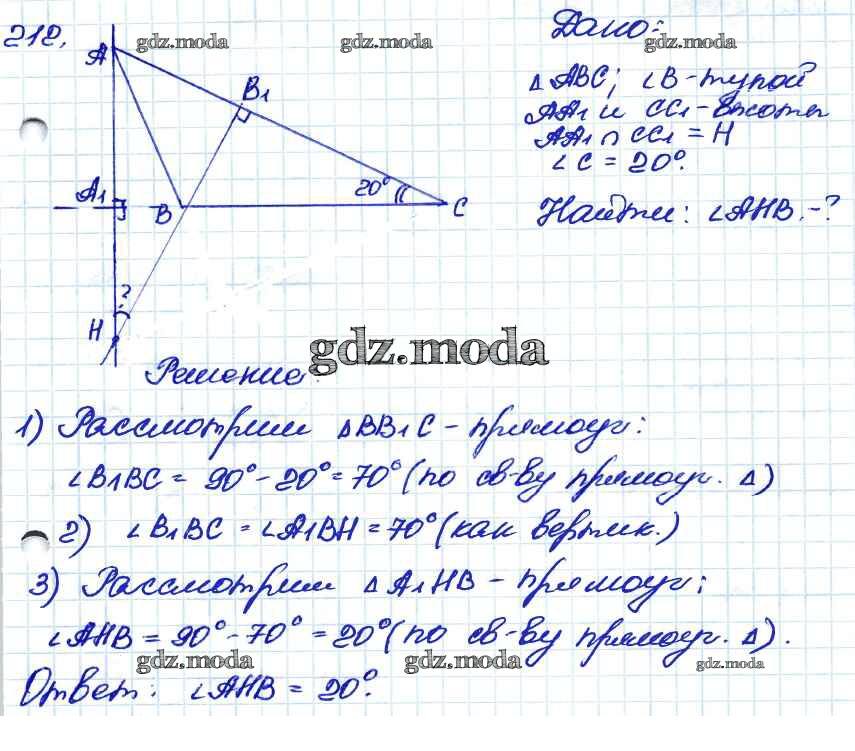 212.
gdz.moda
gdz.moda
gdz.moda
Дано:
△ABC; ∠B - тупой
AA1 и CC1 - высоты
AA1 ∩ CC1 = H
∠C = 20°.
Найти: ∠AHB. - ?
A
B1
A1
B
20°
C
?
H
gdz.moda
Решение:
1) Рассмотрим △BB1C - прямоуг:
∠B1BC = 90° - 20° = 70° (по св-ву прямоуг. △)
2) ∠B1BC = ∠A1BH = 70° (как вертик.)
3) Рассмотрим △A1HB - прямоуг:
∠AHB = 90° - 70° = 20° (по св-ву прямоуг. △).
gdz.moda
gdz.moda
gdz.moda
Ответ: ∠AHB = 20°.